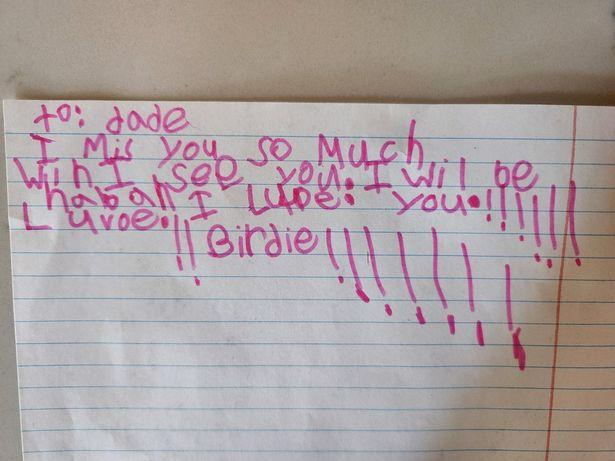 to: dade
I Mis you so Much
win I see you. I wil be
hapah I Luve. you.!!!!!!
Luroe.
!! Birdie !!!!!!!!